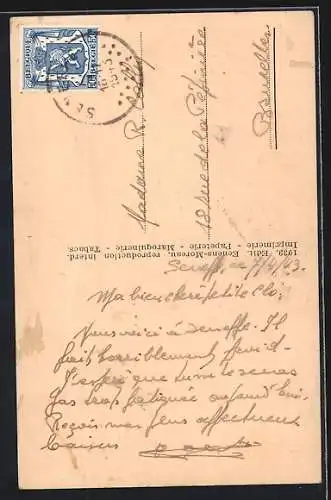 BELGIQUE
Madame R.
18 rue de la Pépinière
Bruxelles
1932. Edit. Evrens-Moreau. reproduction interd.
Imprimerie - Papeterie - Maroquinerie - Tabacs.
Seneffe, le 7/4/43.
Ma bien chère petite Clo,
Nous voici à Seneffe. Il
fait horriblement froid.
J'espère que tu ne te seras
pas trop fatiguée aujourd'hui.
Reçois mes plus affectueux
baisers